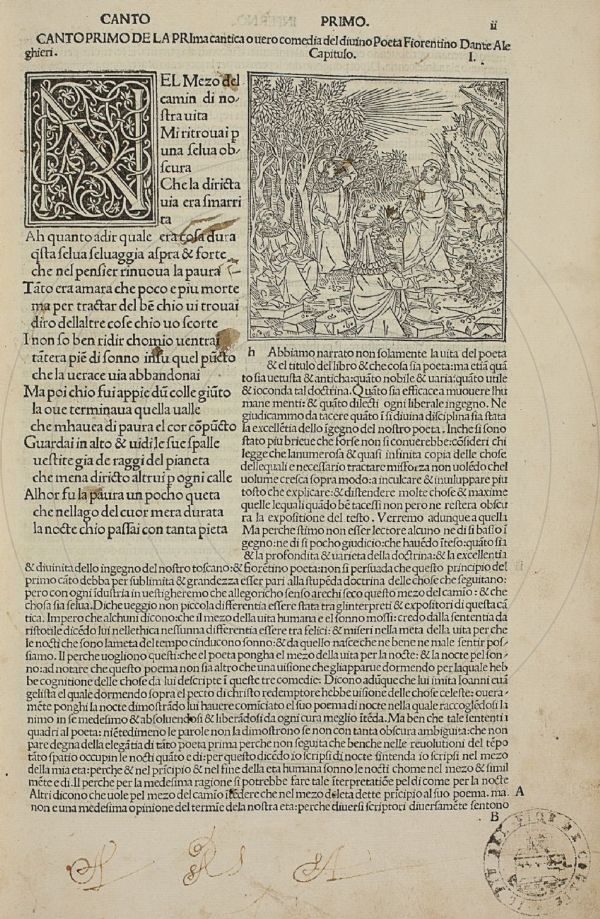 CANTO PRIMO. ii
CANTO PRIMO DE LA PRIma cantica o uero comedia del diuino Poeta Fiorentino Dante Ale
ghieri. Capituło. I.
NEL Mezo del
camin di no-
stra uita
Mi ritrouai p
una selua ob-
scura
Che la diricta
uia era smarri
ta
Ah quanto adir quale era cosa dura
q̃sta selua seluaggia aspra & forte
che nel pensier rinuoua la paura
Tãto era amara che poco e piu morte
ma per tractar del bẽ chio ui trouai
diro dellaltre cose chio uo scorte
I non so ben ridir chomio uentrai
tãtera piẽ di sonno insu quel pũcto
che la uerace uia abbandonai
Ma poi chio fui appie dũ colle giũto
la oue terminaua quella ualle
che mhauea di paura el cor cõpũcto
Guardai in alto & uidi le sue spalle
uestite gia de raggi del pianeta
che mena diricto altrui p ogni calle
Alhor fu la paura un pocho queta
che nellago del cuor mera durata
la nocte chio passai con tanta pieta
h Abbiamo narrato non solamente la uita del poeta
& el titolo del libro & che cosa sia poeta: ma etiã quã
to sia uetusta & anticha: quãto nobile & uaria: quãto utile
& ioconda tal doctrina. Quãto sia efficace a muouere lhu
mane menti: & quãto dilecti ogni liberale ingegno. Ne
giudicammo da tacere quãto ĩ si diuina disciplina sia stata
la excellẽtia dello ĩgegno del nostro poeta. Inche si sono
stato piu brieue che forse non si conuerebbe: cõsideri chi
legge che lanumerosa & quasi infinita copia delle chose
dellequali e necessario tractare misforza non uolẽdo chel
uolume cresca sopra modo: a inculcare & inuiluppare piu
tosto che explicare: & distendere molte chose & maxime
quelle lequali quãdo bẽ tacessi non pero ne restera obscu
ra la expositione del testo. Verremo adunque a quella
Ma perche stimo non esser lectore alcuno ne di si basso ĩ
gegno: ne di si pocho giudicio: che hauẽdo ĩteso: quãto sia
& la profondita & uarieta della doctrina: & la excellentia
& diuinita dello ingegno del nostro toscano: & fiorẽtino poeta: non si persuada che questo principio del
primo cãto debba per sublimita & grandezza esser pari alla stupẽda doctrina delle chose che seguitano:
pero con ogni ĩdustria in uestigheremo che allegoricho senso arechi seco questo mezo del camio: & che
chosa sia selua. Diche ueggio non piccola differentia essere stata tra glinterpreti & expositori di questa cã
tica. Impero che alchuni dicono: che il mezo della uita humana e el sonno mossi: credo dalla sententia da
ristotile dicẽdo lui nellethica nessunna differentia essere tra felici: & miseri nella meta della uita per che
le nocti che sono lameta del tempo cinducono sonno: & da quello nasce che ne bene ne male sentir pos
siamo. Il perche uogliono questi: che el poeta pongha el mezo della uita per la nocte: & la nocte pel son-
no: ad notare che questo poema non sia altro che una uisione che gliapparue dormendo per laquale heb
be cognitione delle chose da lui descripte ĩ queste tre comedie: Dicono adũque che lui imita Ioanni euã
gelista el quale dormendo sopra el pecto di christo redemptore hebbe uisione delle chose celeste: ouera-
mẽte ponghi la nocte dimostrãdo lui hauere comĩciato el suo poema di nocte nella quale raccoglẽdosi la
nimo in se medesimo & absoluendosi & liberãdosi da ogni cura meglio ĩtẽda. Ma ben che tale sententi a
quadri al poeta: niẽtedimeno le parole non la dimostrono se non con tanta obscura ambiguita: che non
pare degna della elegãtia di tãto poeta prima perche non seguita che benche nelle reuolutioni del tẽpo
tãto spatio occupin le nocti quãto e di: per questo dicẽdo io scripsi di nocte sintenda io scripsi nel mezo
della mia eta: perche & nel prĩcipio & nel fine della eta humana sonno le nocti chome nel mezo & simil
mẽte e di. Il perche per la medesima ragione si potrebbe fare tale ĩterpretatiõe pel di come per la nocte
Altri dicono che uole pel mezo del camio ĩtẽdere che nel mezo de leta dette prĩcipio al suo poema. ma A
non e una medesima opinione del termĩe della nostra eta: perche diuersi scriptori diuersamẽte sentono
B